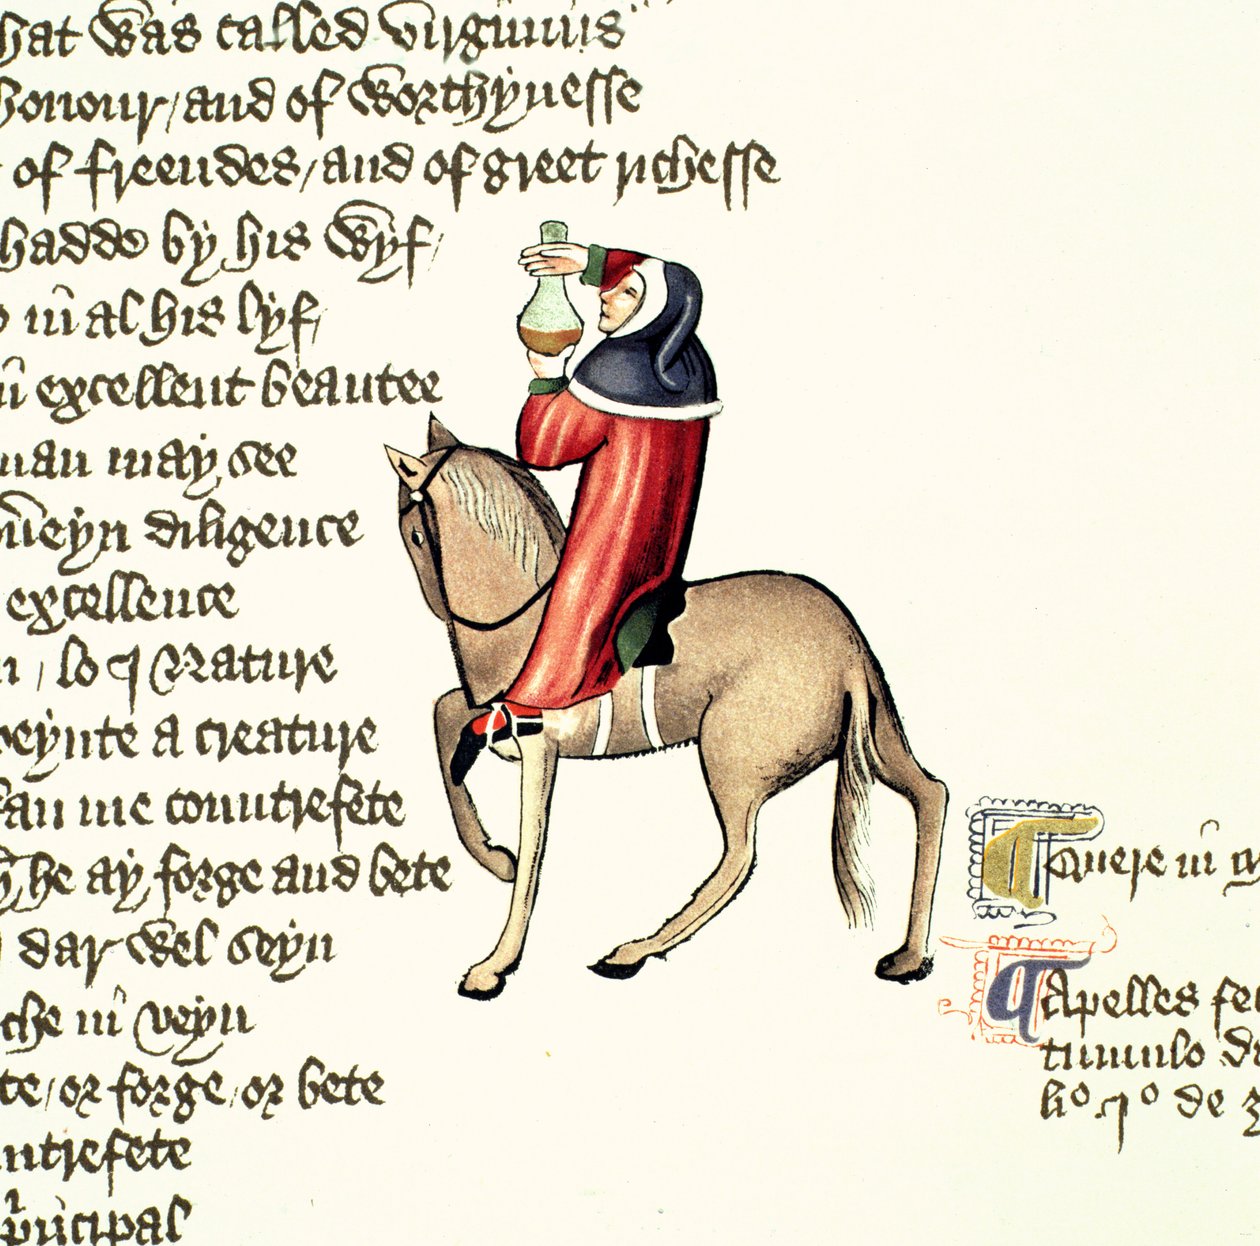 that was called Virginius
honour / and of worthynesse
of freendes / and of greet richesse
hadde by his wyf /
in al his lyf /
in excellent beautee
man may see
diligence
excellence
/ lo I Nature
peynte a creature
kan me countrefete
he ay forge and bete
dar wel seyn
che in veyn
te / or forge / or bete
untrefete
principal
Quere in
Apelles fe
tumulo
li⁰ 1⁰ de